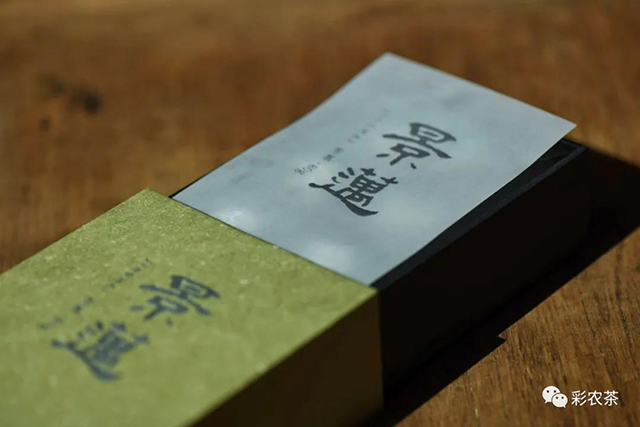 景
邁
景
邁
彩农茶